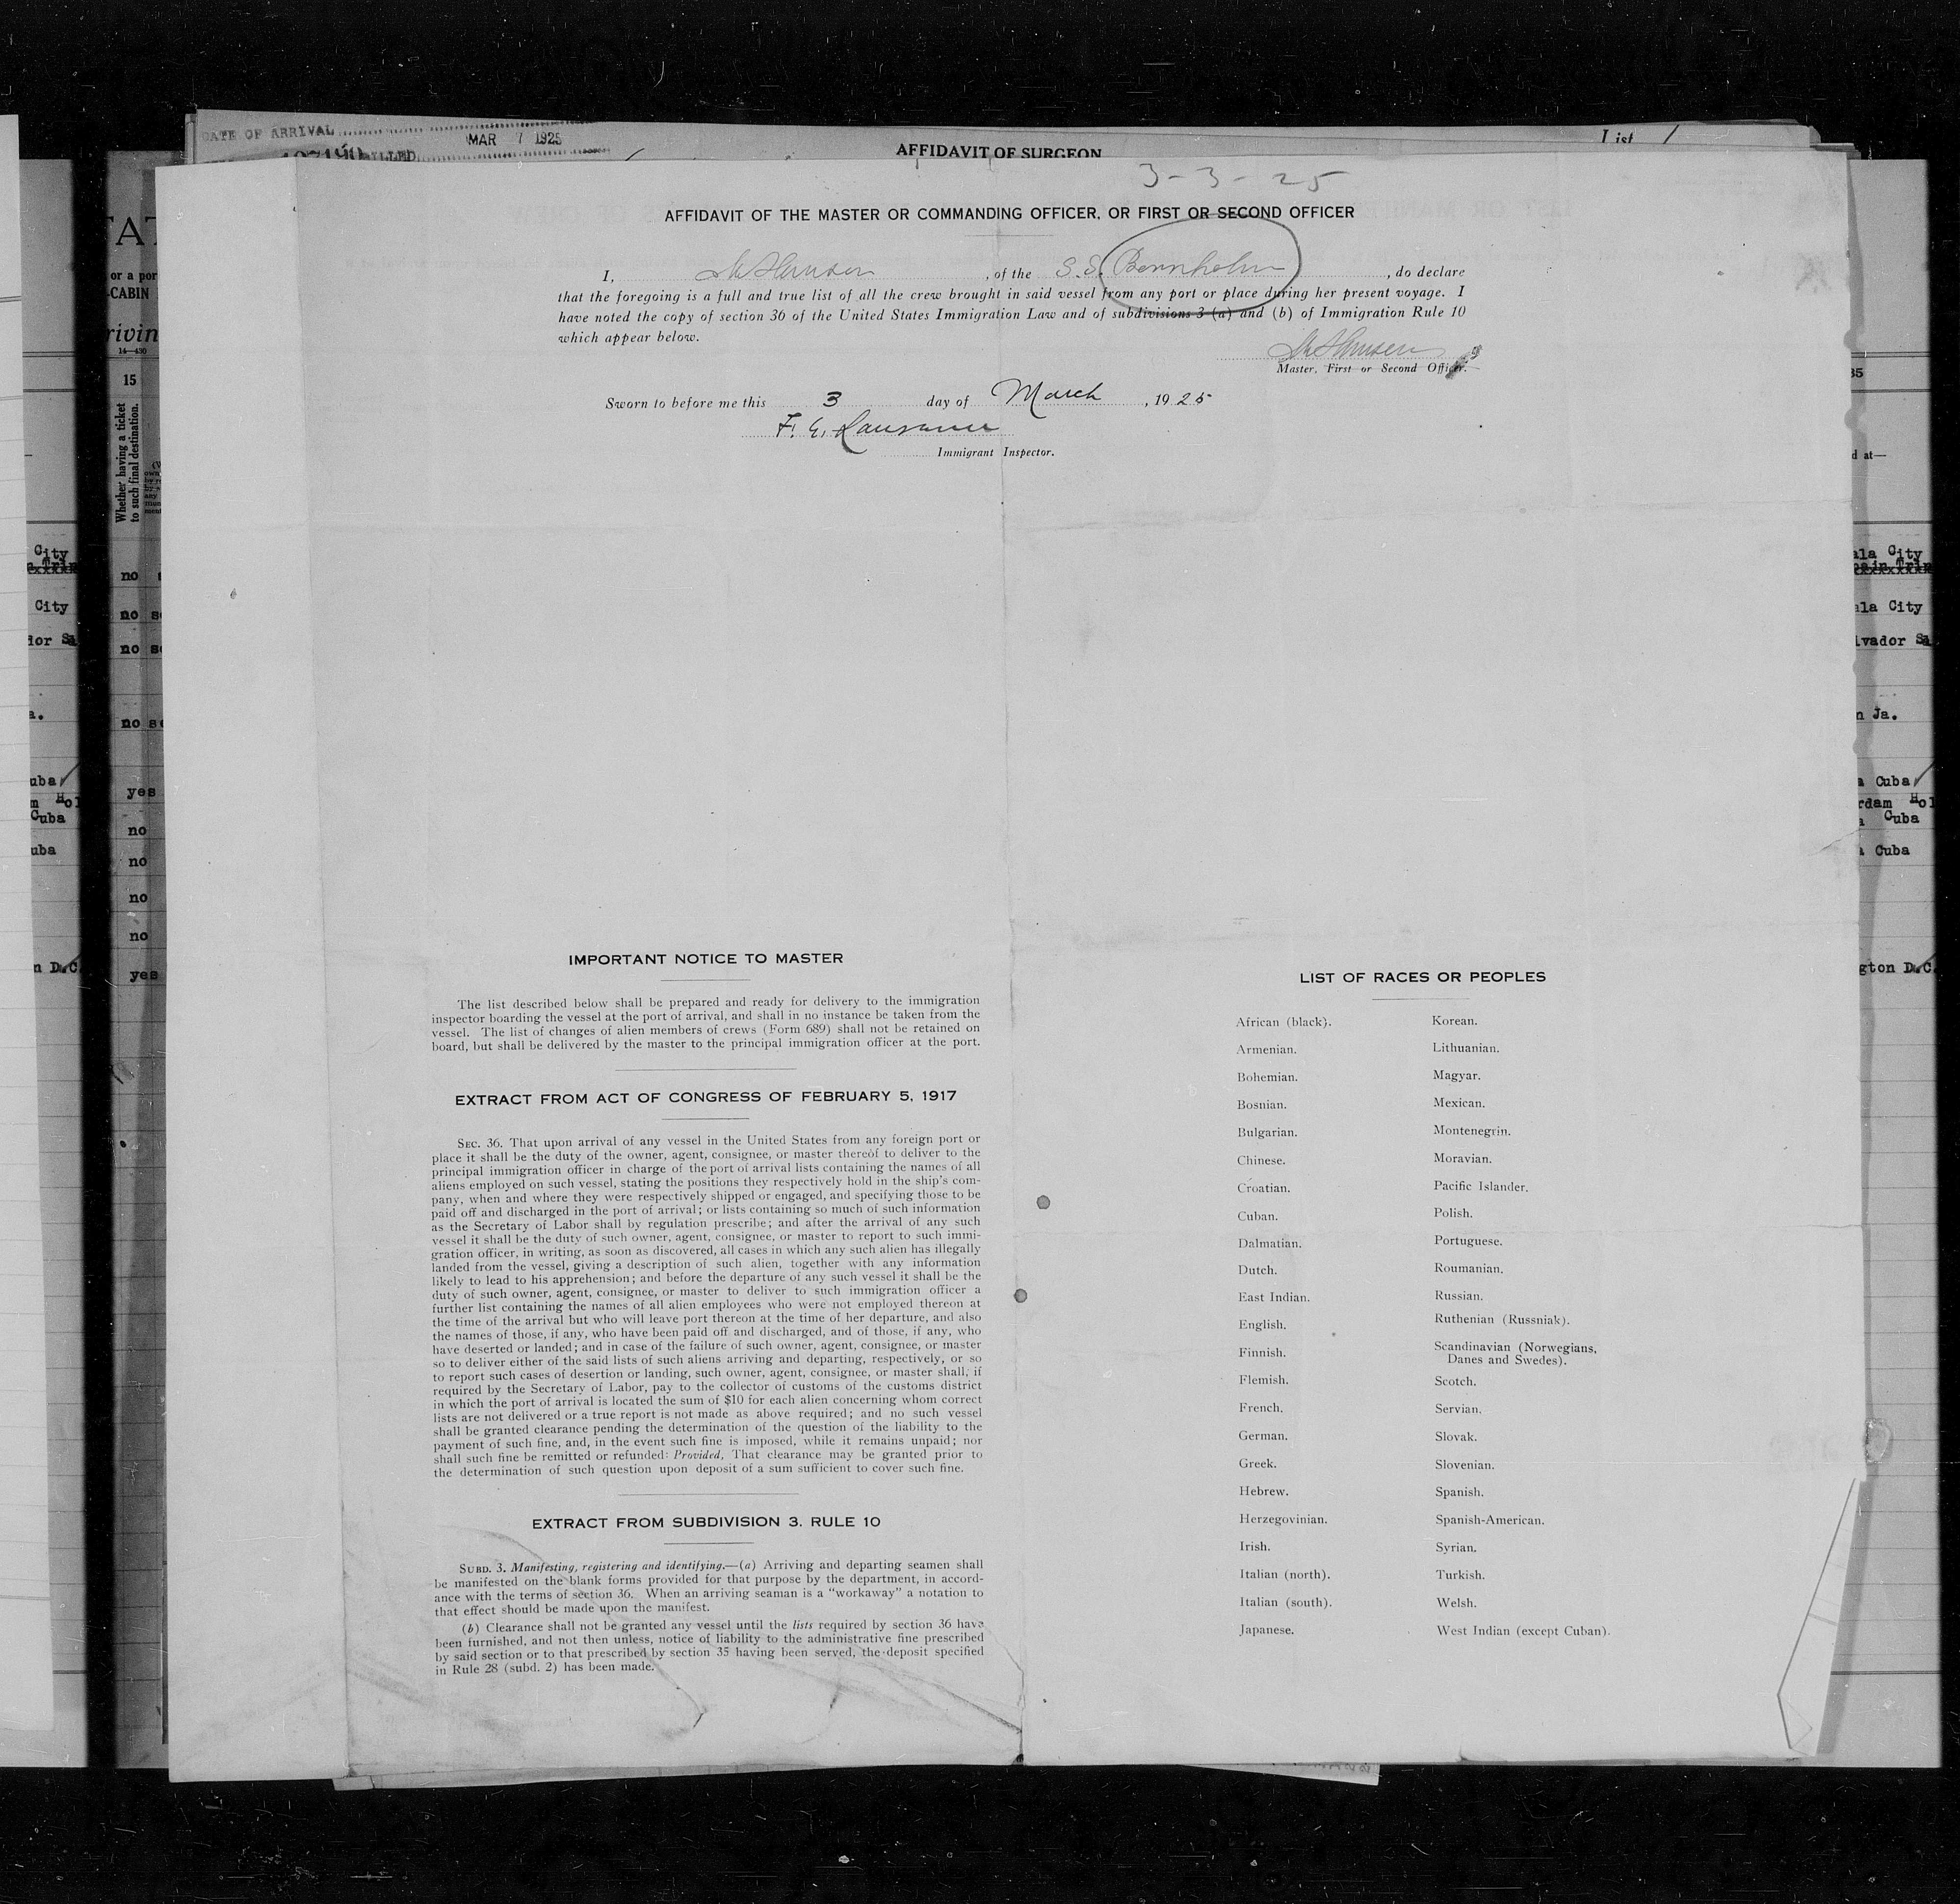 DATE OF ARRIVAL MAR 7 1925
AFFIDAVIT OF SURGEON
List 1
3-3-25
AFFIDAVIT OF THE MASTER OR COMMANDING OFFICER, OR FIRST OR SECOND OFFICER
I, Hansen, of the S.S. Bornholm, do declare
that the foregoing is a full and true list of all the crew brought in said vessel from any port or place during her present voyage. I
have noted the copy of section 36 of the United States Immigration Law and of subdivisions 3 (a) and (b) of Immigration Rule 10
which appear below.
Hansen
Master, First or Second Officer.
Sworn to before me this 3 day of March, 1925
F. E.
Immigrant Inspector.
IMPORTANT NOTICE TO MASTER
The list described below shall be prepared and ready for delivery to the immigration
inspector boarding the vessel at the port of arrival, and shall in no instance be taken from the
vessel. The list of changes of alien members of crews (Form 689) shall not be retained on
board, but shall be delivered by the master to the principal immigration officer at the port.
EXTRACT FROM ACT OF CONGRESS OF FEBRUARY 5, 1917
SEC. 36. That upon arrival of any vessel in the United States from any foreign port or
place it shall be the duty of the owner, agent, consignee, or master thereof to deliver to the
principal immigration officer in charge of the port of arrival lists containing the names of all
aliens employed on such vessel, stating the positions they respectively hold in the ship's com-
pany, when and where they were respectively shipped or engaged, and specifying those to be
paid off and discharged in the port of arrival; or lists containing so much of such information
as the Secretary of Labor shall by regulation prescribe; and after the arrival of any such
vessel it shall be the duty of such owner, agent, consignee, or master to report to such immi-
gration officer, in writing, as soon as discovered, all cases in which any such alien has illegally
landed from the vessel, giving a description of such alien, together with any information
likely to lead to his apprehension; and before the departure of any such vessel it shall be the
duty of such owner, agent, consignee, or master to deliver to such immigration officer a
further list containing the names of all alien employees who were not employed thereon at
the time of the arrival but who will leave port thereon at the time of her departure, and also
the names of those, if any, who have been paid off and discharged, and of those, if any, who
have deserted or landed; and in case of the failure of such owner, agent, consignee, or master
so to deliver either of the said lists of such aliens arriving and departing, respectively, or so
to report such cases of desertion or landing, such owner, agent, consignee, or master shall, if
required by the Secretary of Labor, pay to the collector of customs of the customs district
in which the port of arrival is located the sum of $10 for each alien concerning whom correct
lists are not delivered or a true report is not made as above required; and no such vessel
shall be granted clearance pending the determination of the question of the liability to the
payment of such fine, and, in the event such fine is imposed, while it remains unpaid; nor
shall such fine be remitted or refunded: Provided, That clearance may be granted prior to
the determination of such question upon deposit of a sum sufficient to cover such fine.
EXTRACT FROM SUBDIVISION 3, RULE 10
SUBD. 3. Manifesting, registering and identifying.—(a) Arriving and departing seamen shall
be manifested on the blank forms provided for that purpose by the department, in accord-
ance with the terms of section 36. When an arriving seaman is a "workaway" a notation to
that effect should be made upon the manifest.
(b) Clearance shall not be granted any vessel until the lists required by section 36 have
been furnished, and not then unless, notice of liability to the administrative fine prescribed
by said section or to that prescribed by section 35 having been served, the deposit specified
in Rule 28 (subd. 2) has been made.
LIST OF RACES OR PEOPLES
African (black).
Armenian.
Bohemian.
Bosnian.
Bulgarian.
Chinese.
Croatian.
Cuban.
Dalmatian.
Dutch.
East Indian.
English.
Finnish.
Flemish.
French.
German.
Greek.
Hebrew.
Herzegovinian.
Irish.
Italian (north).
Italian (south).
Japanese.
Korean.
Lithuanian.
Magyar.
Mexican.
Montenegrin.
Moravian.
Pacific Islander.
Polish.
Portuguese.
Roumanian.
Russian.
Ruthenian (Russniak).
Scandinavian (Norwegians,
Danes and Swedes).
Scotch.
Servian.
Slovak.
Slovenian.
Spanish.
Spanish-American.
Syrian.
Turkish.
Welsh.
West Indian (except Cuban).